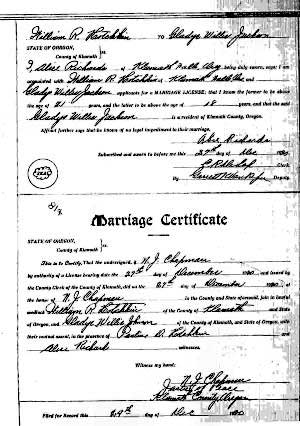 William R. Hotchkin TO Gladys Willis Jackson
STATE OF OREGON,
County of Klamath
I, Alice Richards of Klamath Falls Oreg being duly sworn, say: I am
acquainted with William R Hotchkin of Klamath Falls Ore and
Gladys Willis Jackson applicants for a MARRIAGE LICENSE; that I know the former to be above
the age of 21 years, and the latter to be above the age of 18 years, and that the said
Gladys Willis Jackson is a resident of Klamath County, Oregon.
Affiant further says that he knows of no legal impediment to their marriage.
Alice Richards
Subscribed and sworn to before me this 27th day of Dec
SEAL
By Deputy
Marriage Certificate
STATE OF OREGON,
County of Klamath
This is to Certify, That the undersigned, a N. J. Chapman
by authority of a License bearing date the 27th day of December and issued by
the County Clerk of the County of Klamath, did on the 27th day of December at
the home of N. J. Chapman in the County and State aforesaid, join in lawful
wedlock William R. Hotchkin of the County of Klamath and State
of Oregon, and Gladys Willis Johnson of the County of Klamath, and State of Oregon, with
their mutual assent, in the presence of Hotchkin and
Alice Richards witnesses.
Witness my hand:
N. J. Chapman
Justice of Peace
Klamath County Oregon
Filed for Record this 29th day of Dec